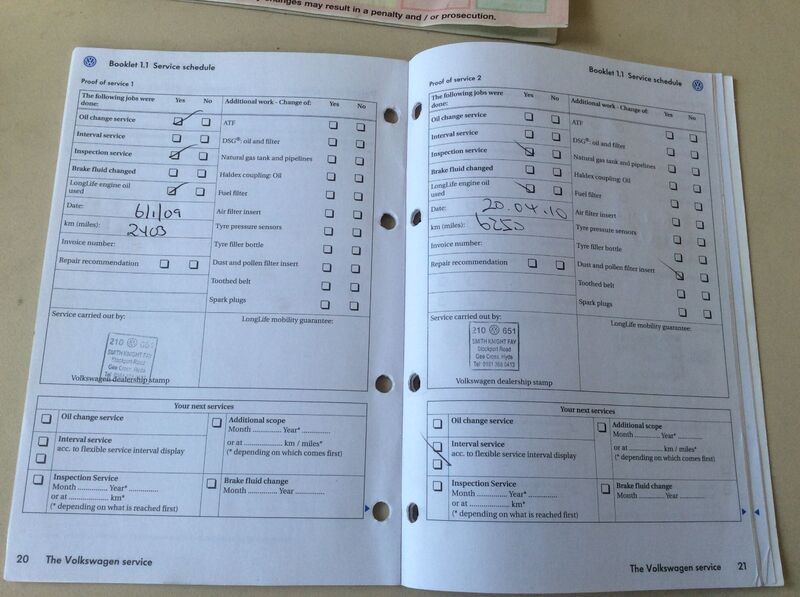 y changes may result in a penalty and / or prosecution.
Booklet 1.1 Service schedule
Proof of service 1
The following jobs were done: Yes No
Additional work - Change of: Yes No
Oil change service
Interval service
Inspection service
Brake fluid changed
LongLife engine oil used
Date: 6/1/09
km (miles): 2403
Invoice number:
Repair recommendation
ATF
DSG®: oil and filter
Natural gas tank and pipelines
Haldex coupling: Oil
Fuel filter
Air filter insert
Tyre pressure sensors
Tyre filler bottle
Dust and pollen filter insert
Toothed belt
Spark plugs
Service carried out by:
LongLife mobility guarantee:
210 651
SMITH KNIGHT FAY
Stockport Road
Gee Cross, Hyde
Volkswagen dealership stamp
Your next services
Oil change service
Interval service
acc. to flexible service interval display
Inspection Service
Month .............. Year* ..............
or at .................... km*
(* depending on what is reached first)
Additional scope
Month .............. Year* ..............
or at .................... km / miles*
(* depending on which comes first)
Brake fluid change
Month .............. Year ..............
20 The Volkswagen service
Booklet 1.1 Service schedule
Proof of service 2
The following jobs were done: Yes No
Additional work - Change of: Yes No
Oil change service
Interval service
Inspection service
Brake fluid changed
LongLife engine oil used
Date: 20.04.10
km (miles): 6253
Invoice number:
Repair recommendation
ATF
DSG®: oil and filter
Natural gas tank and pipelines
Haldex coupling: Oil
Fuel filter
Air filter insert
Tyre pressure sensors
Tyre filler bottle
Dust and pollen filter insert
Toothed belt
Spark plugs
Service carried out by:
LongLife mobility guarantee:
210 651
SMITH KNIGHT FAY
Stockport Road
Gee Cross, Hyde
Tel: 0161 368 0413
Volkswagen dealership stamp
Your next services
Oil change service
Interval service
acc. to flexible service interval display
Inspection Service
Month .............. Year* ..............
or at .................... km*
(* depending on what is reached first)
Additional scope
Month .............. Year* ..............
or at .................... km / miles*
(* depending on which comes first)
Brake fluid change
Month .............. Year ..............
The Volkswagen service 21